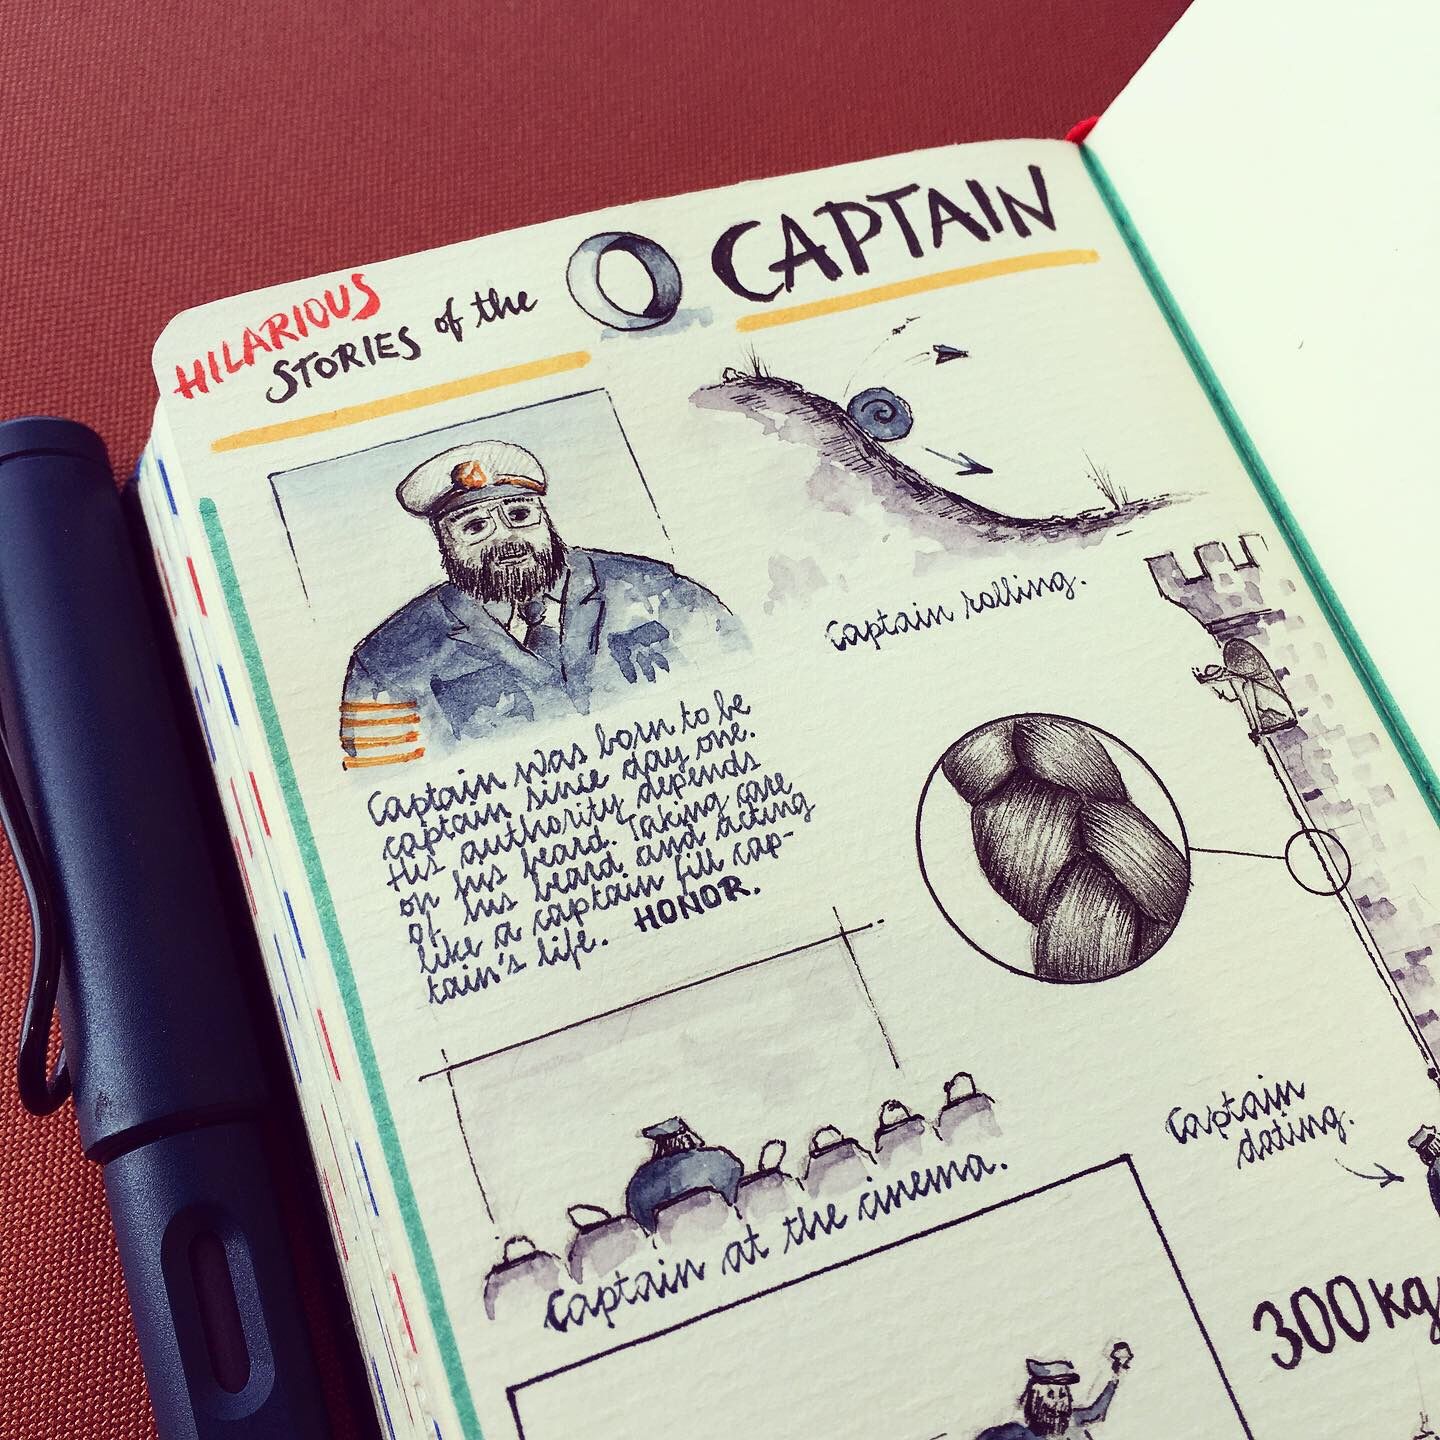 HILARIOUS
STORIES of the
CAPTAIN
Captain was born to be
captain since day one.
His authority depends
on his beard. Taking care
of his beard and acting
like a captain fill cap-
tain's life. HONOR.
Captain rolling.
Captain
dating.
Captain at the cinema.
300 kg